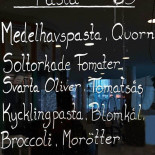 Pasta 65
Medelhavspasta, Quorn
Soltorkade Tomater
Svarta Oliver, Tomatsås
Kycklingpasta, Blomkål,
Broccoli, Morötter